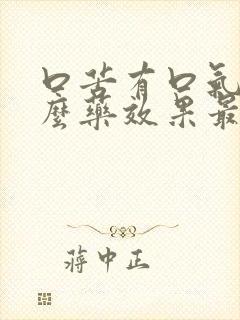 口苦有口氣
麼藥效果最
蔣中正